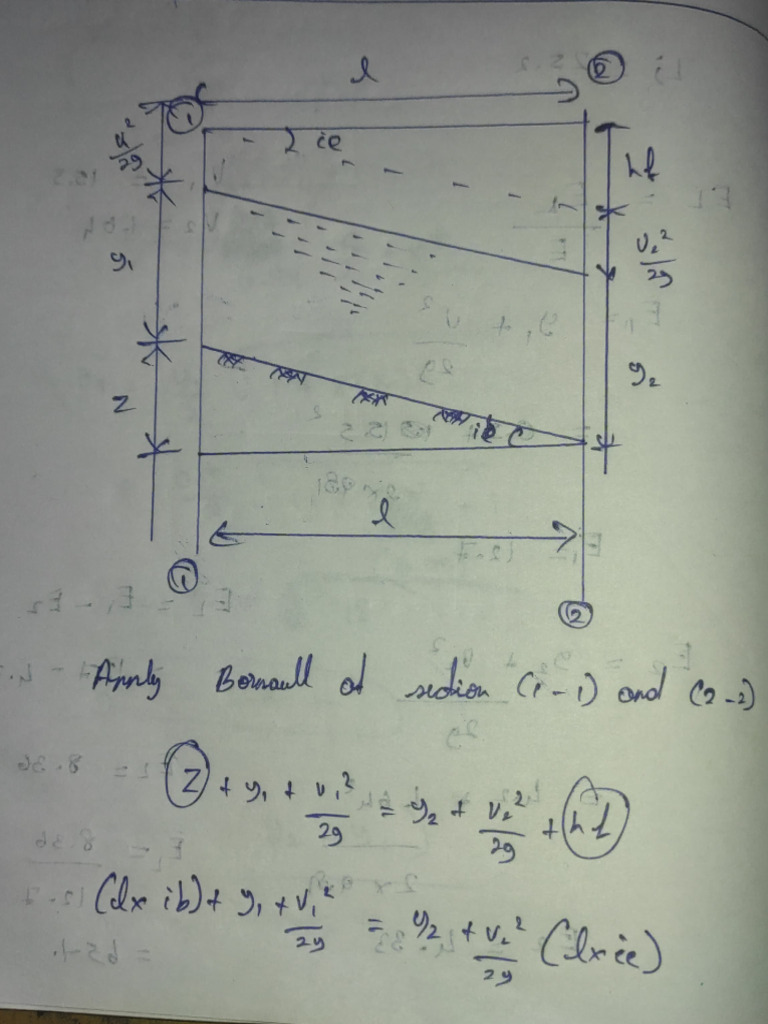 l
① ②
v₁²/2g
ie
hf
y₁
v₂²/2g
y₂
Z
ib
l
① ②
Apply Bornaull at section (1-1) and (2-2)
Z + y₁ + v₁²/2g = y₂ + v₂²/2g + hf
(l x ib) + y₁ + v₁²/2g = y₂ + v₂²/2g (l x ie)